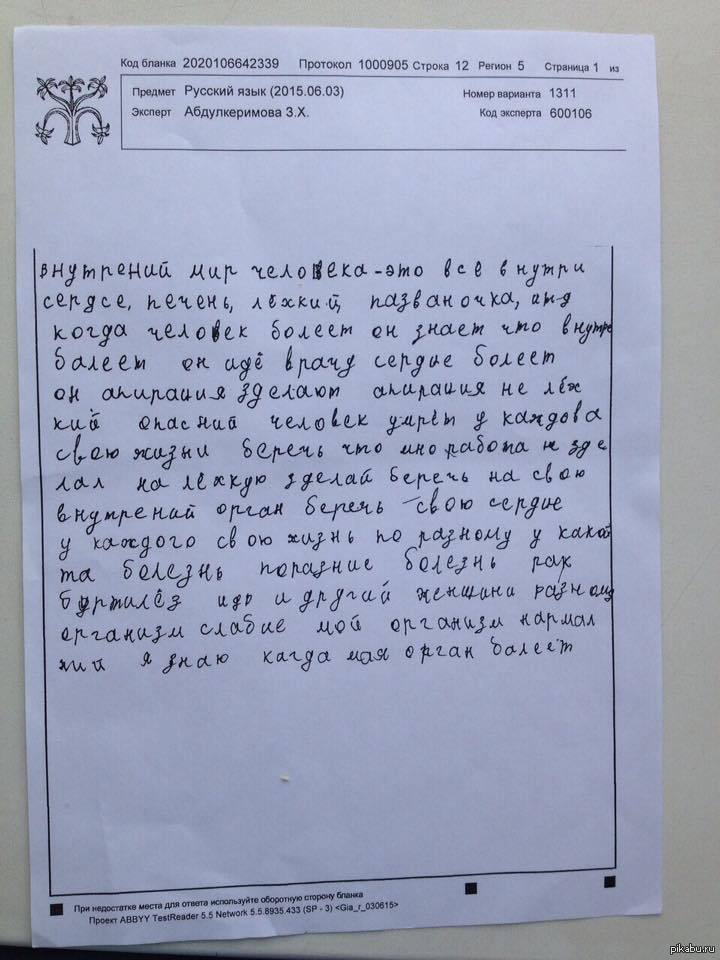 Код бланка 2020106642339 Протокол 1000905 Строка 12 Регион 5 Страница 1 из
Предмет Русский язык (2015.06.03) Номер варианта 1311
Эксперт Абдулкеримова З.Х. Код эксперта 600106
внутрений мир человека - это все внутри
сердсе, печень, лёхкий, пазваночка, итд
когда человек болеет он знает что внутре
балеет он идё врачу сердце болеет
он апирация зделают апирация не лёх
кий опасний человек умрёт у каждова
свою жизни беречь что мно работа н зде
лал на лёхкую зделай беречь на свою
внутрений орган беречь свою сердце
у каждого свою жизнь по разному у какой
та болезнь поразние болезнь рак
идр и другий женщини разному
организм слабие мой организм нармал
ний я знаю кагда мая орган балеет
При недостатке места для ответа используйте оборотную сторону бланка
Проект ABBYY TestReader 5.5 Network 5.5.8935.433 (SP - 3) <Gia_r_030615>
pikabu.ru